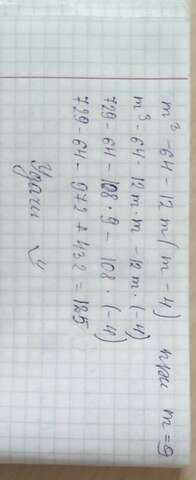 m³-64-12m(m-4) при m=9
m³-64-12m·m-12m·(-4)
729-64-108·9-108·(-4)
729-64-972+432=125
Удачи